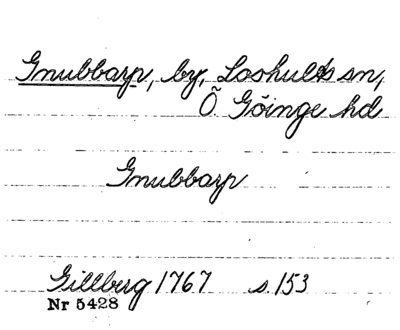 Gnubbarp, by, Loshults sn,
Ö Göinge hd
Gnubbarp
Gillberg 1767 s. 153
Nr 5428